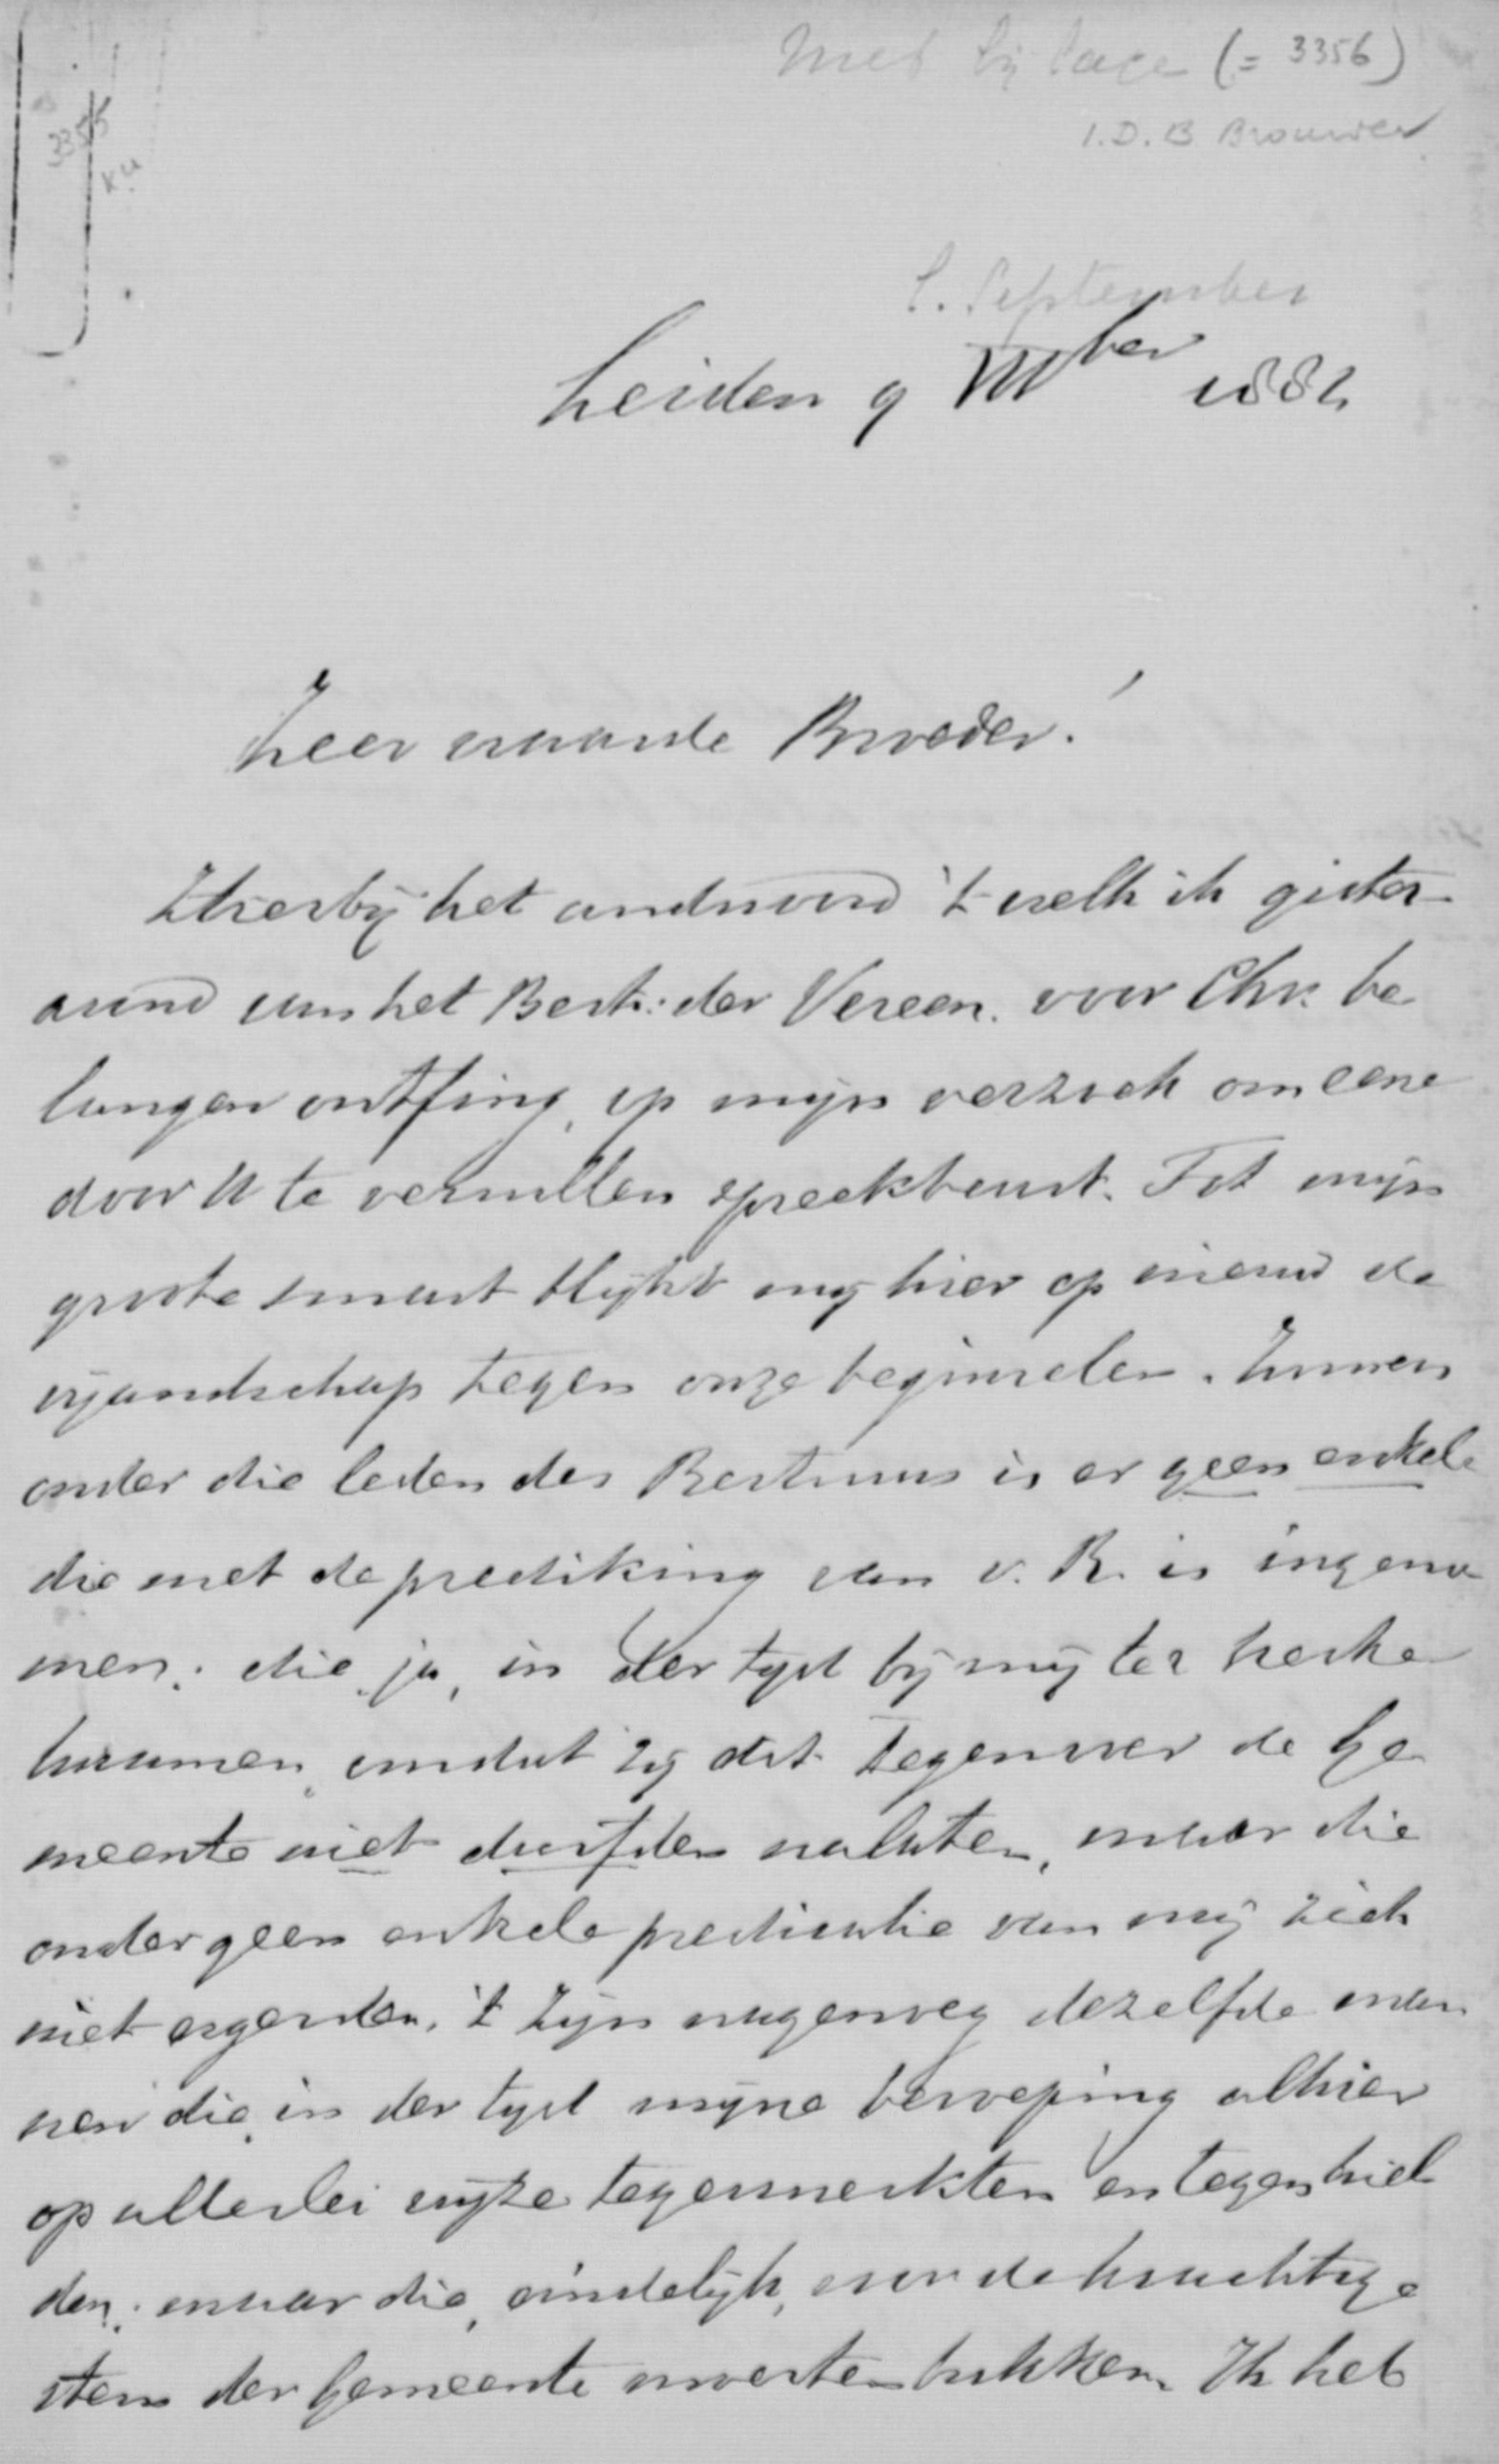 Met bijlage (= 3356)
I.D.B Brouwer
3355
Ku
September
Leiden 9 VIIber 1882
Zeer waarde Broeder!
Hierbij het andwoord 't welk ik gister-
avond van het Best: der Vereen. voor Chr. be
langen ontfing, op mijn verzoek om eene
door U te vervullen spreekbeurt. Tot mijn
groote smart blijkt mij hier op nieuw de
vijandschap tegen onze beginselen. Immers
onder die leden des Bestuurs is er geen enkele
die met de prediking van v. R. is ingeno
men; die ja, in der tijd bij mij ter kerke
kwamen, omdat zij dit tegenover de Ge
meente niet durfden nalaten, maar die
onder geen enkele predicatie van mij zich
niet ergerden. 't Zijn nagenoeg dezelfde man
nen die, in der tijd mijne beroeping alhier
op allerlei wijze tegenwerkten en tegenhiel
den; maar die, eindelijk, voor de krachtige
stem der Gemeente moesten bukken. Ik heb